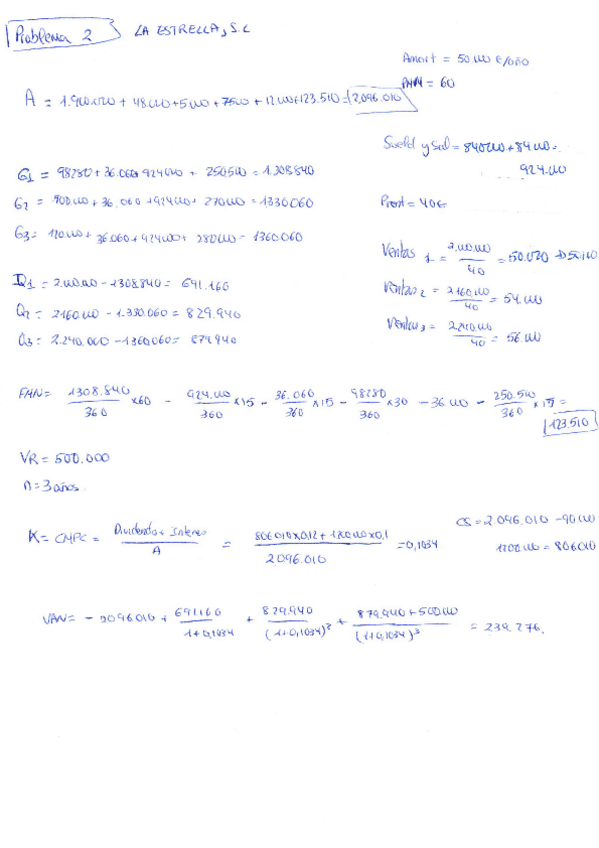 Problema 2 LA ESTRELLA, S.L
Amort = 50.000 €/año
PMM = 60
A = 1.900.000 + 48.000 + 5.000 + 7500 + 12.000 + 123.510 = 2.096.010
Sueld y Sal = 840000 + 84.000 =
924.000
G1 = 98280 + 36.060 + 924000 + 250500 = 1.308.840
G2 = 100.000 + 36.060 + 924000 + 270000 = 1330060
G3 = 120.000 + 36.060 + 924000 + 280000 = 1360060
Prod = 40€
Ventas 1 = 2.000.000 / 40 = 50.000
Q1 = 2.000.000 - 1308.840 = 691.160
Ventas 2 = 2160.000 / 40 = 54.000
Q2 = 2160.000 - 1.330.060 = 829.940
Ventas 3 = 2.240.000 / 40 = 56.000
Q3 = 2.240.000 - 1360060 = 879940
FMN = 1308.840 / 360 x60 - 924.000 / 360 x15 - 36.060 / 360 x15 - 98280 / 360 x30 - 36.000 - 250.500 / 360 x15 =
123.510
VR = 500.000
n = 3 años
K = CMPC = Dividendo + Interes / A = 806010x0,12 + 1200.000x0,1 / 2096.010 = 0,1034
CS = 2.096.010 - 90.000
1200.000 = 806010
VAN = - 2096010 + 691.160 / 1+0,1034 + 829.940 / (1+0,1034)² + 879.940 + 500.000 / (1+0,1034)³ = 239.276.